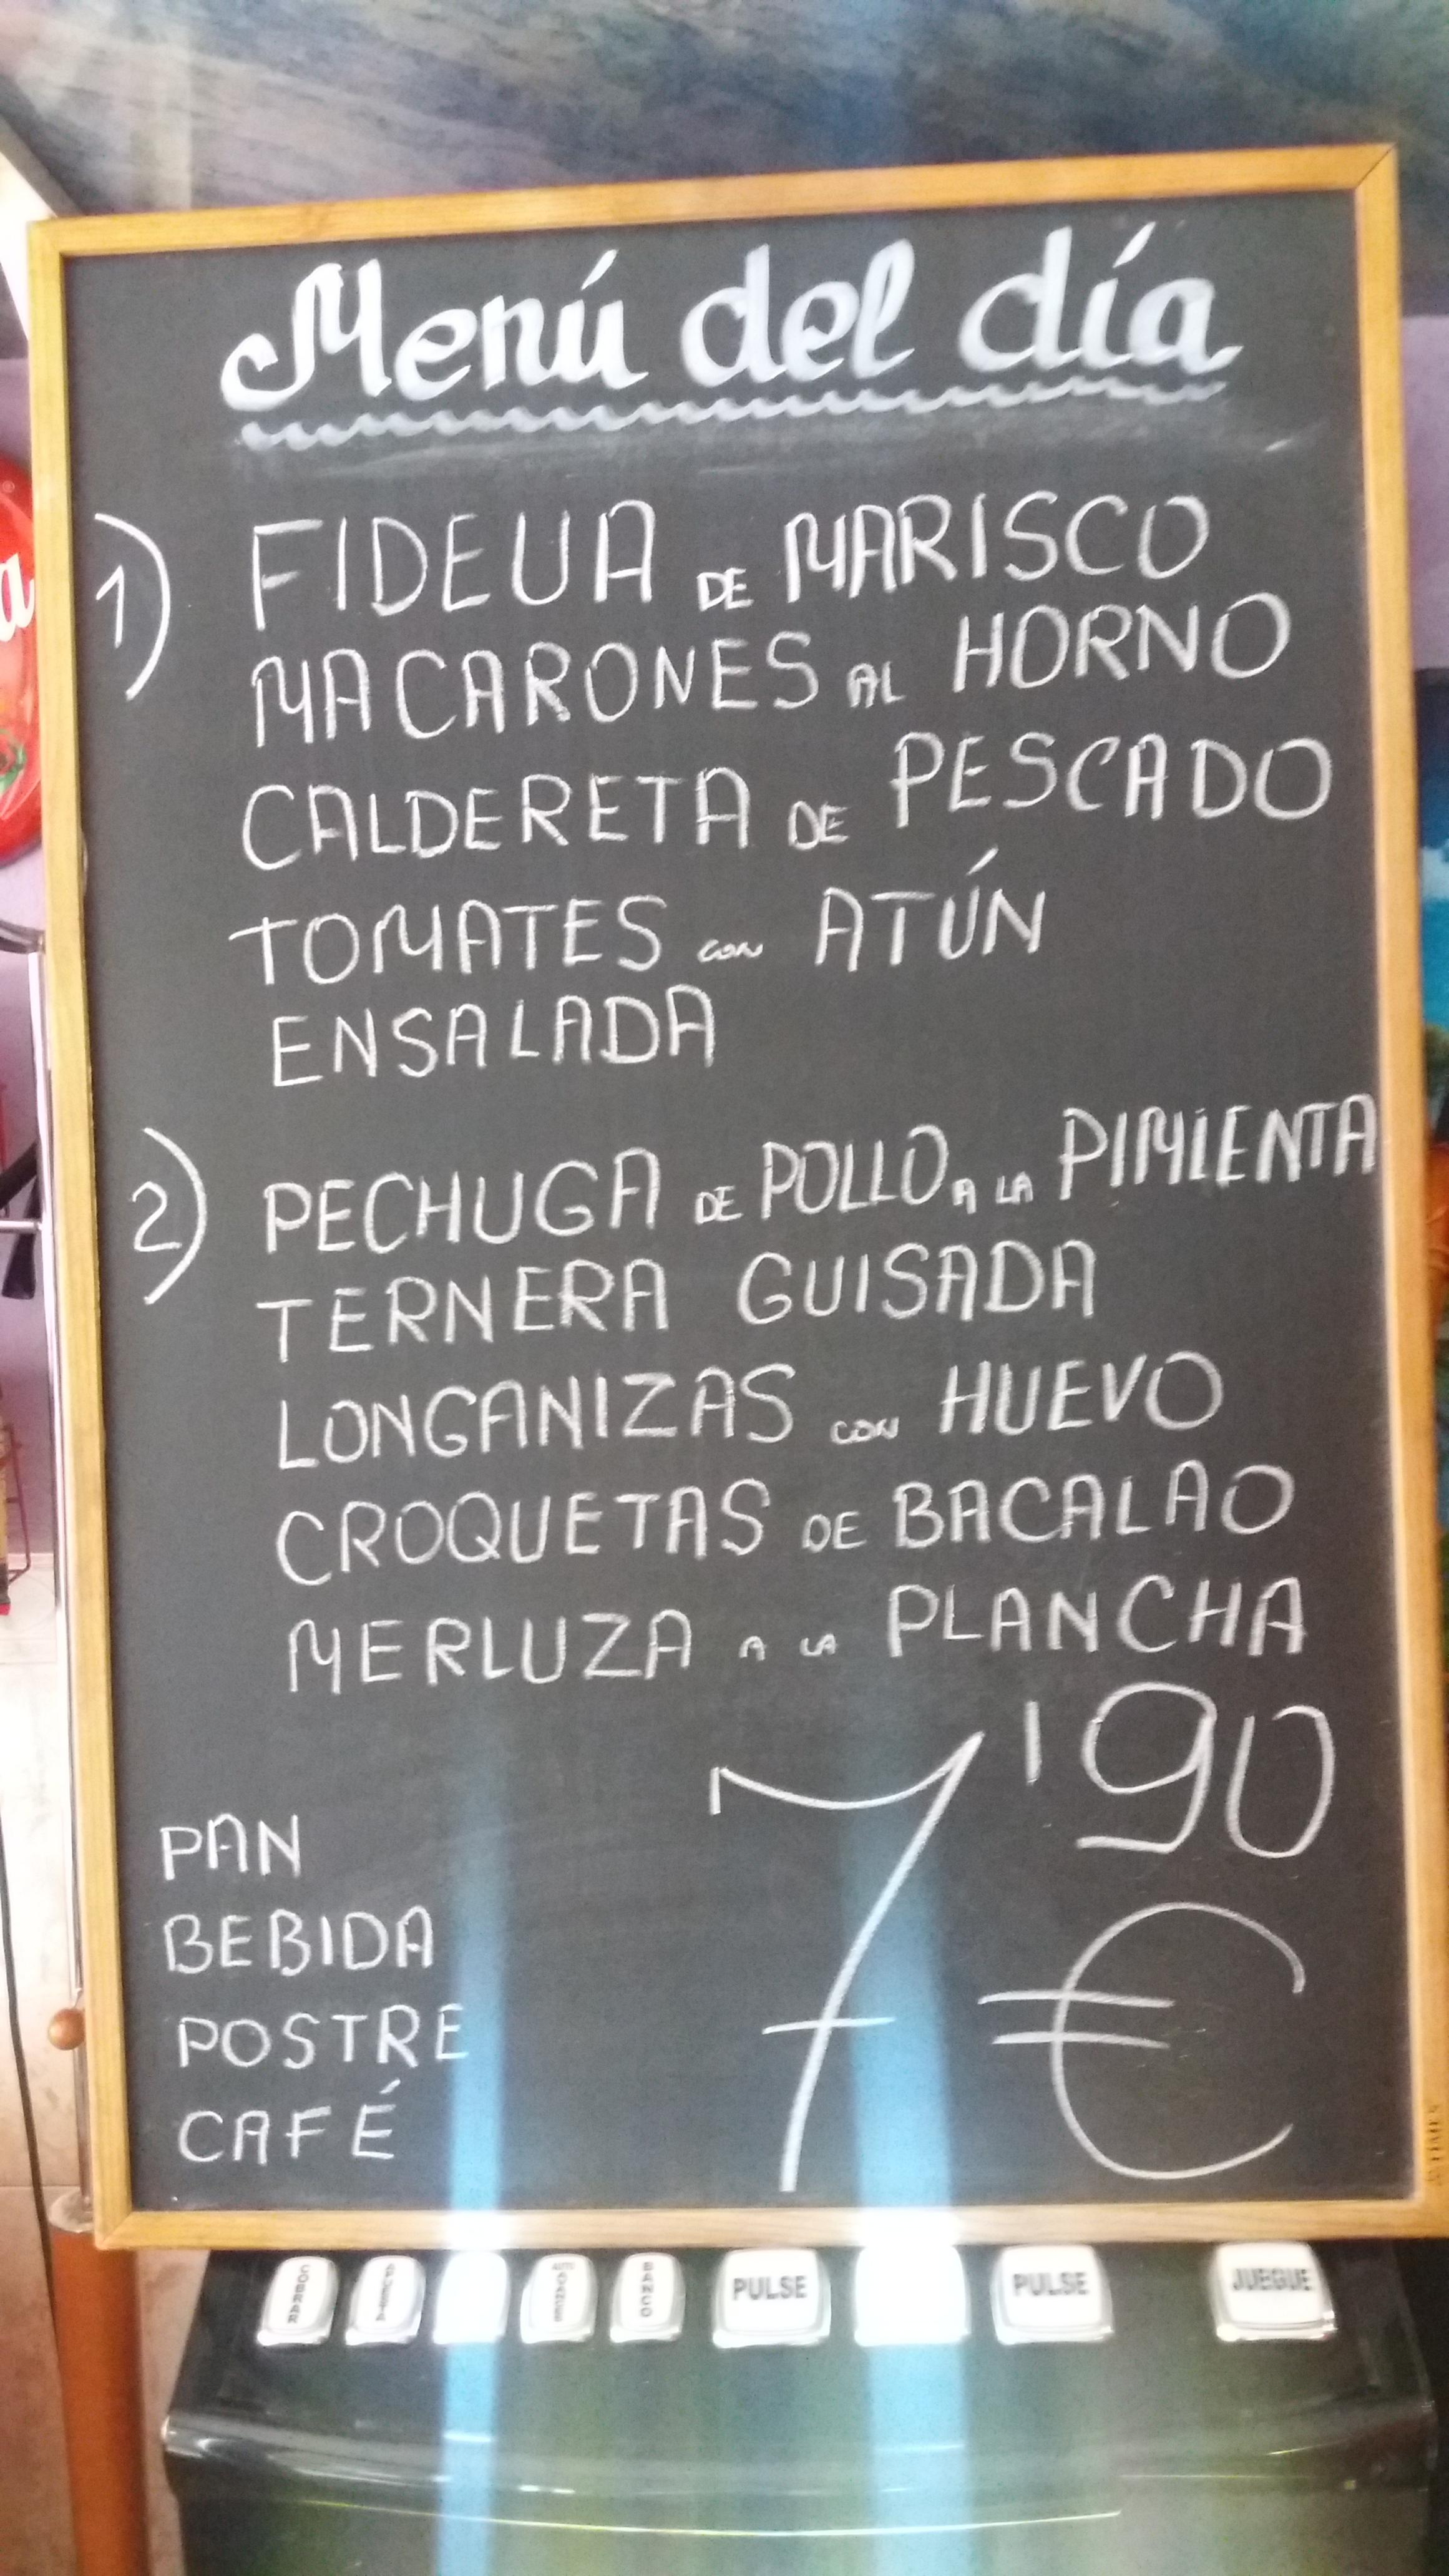 Menú del día
1) FIDEUA DE MARISCO
MACARONES AL HORNO
CALDERETA DE PESCADO
TOMATES CON ATÚN
ENSALADA
2) PECHUGA DE POLLO A LA PIMIENTA
TERNERA GUISADA
LONGANIZAS CON HUEVO
CROQUETAS DE BACALAO
MERLUZA A LA PLANCHA
7'90
€
PAN
BEBIDA
POSTRE
CAFÉ
COBRAR
BANCO
PULSE
PULSE
JUEGUE